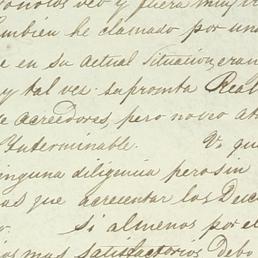 tambien he clamado por una
e en su actual Situacion, eran
y tal vez su pronta Real
e acreedores, pero no veo at
Interminable. Vs qu
ninguna diligencia pero sin
as que acrecentar los Decr
o. Si almenos por el
ios mas satisfactorios Debo